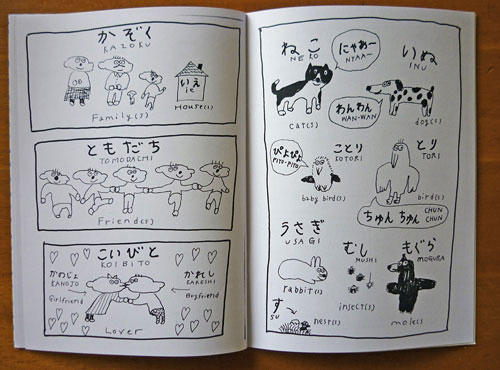 かぞく
KAZOKU
いえ
ie
Family(s)
House(s)
ともだち
TOMODACHI
Friend(s)
こいびと
KOIBITO
かのじょ
KANOJO
Girlfriend
かれし
KARESHI
Boyfriend
Lover
ねこ
NEKO
にゃあー
NYAA-
cat(s)
いぬ
INU
わんわん
WAN-WAN
dog(s)
ぴよぴよ
PIYO-PIYO
ことり
KOTORI
baby bird(s)
とり
TORI
bird(s)
ちゅん ちゅん
CHUN
CHUN
うさぎ
USAGI
rabbit(s)
むし
MUSHI
insect(s)
もぐら
MOGURA
mole(s)
す
SU
nest(s)